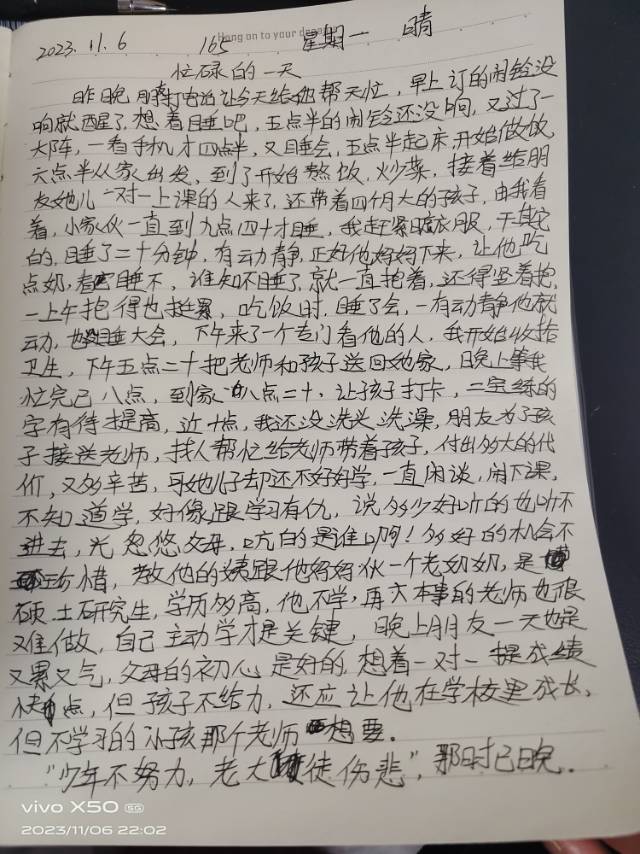 Hang on to your dreams
2023.11.6 165 星期一 晴
忙碌的一天
昨晚朋友打电话让今天给她帮天忙,早上订的闹铃没
响就醒了,想着睡吧,五点半的闹铃还没响,又过了一
大阵,一看手机才四点半,又睡会,五点半起床,开始做饭
六点半从家出发,到了开始熬饭,炒菜,接着给朋
友她儿一对一上课的人来了,还带着四个月大的孩子,由我看
着,小家伙一直到九点四十才睡,我赶紧晾衣服,干其它
的,睡了二十分钟,有动静,正好他妈妈下来,让他吃
点奶,看睡不,谁知不睡了,就一直抱着,还得竖着抱,
一上午抱得也挺累,吃饭时,睡了会,一有动静他就
动,也没睡大会,下午来了一个专门看他的人,我开始收拾
卫生,下午五点二十把老师和孩子送回她家,晚上等我
忙完已八点,到家八点二十,让孩子打卡,二宝练的
字有待提高,近十点,我还没洗头洗澡,朋友为了孩
子接送老师,找人帮忙给老师带着孩子,付出多大的代
价,又多辛苦,可她儿子却还不好好学,一直闲谈,闹下课,
不知道学,好像跟学习有仇,说多少好听的也听不
进去,光忽悠父母,坑的是谁啊!多好的机会不
珍惜,教他的姨跟他妈妈伙一个老奶奶,是
硕士研究生,学历多高,他不学,再大本事的老师也很
难做,自己主动学才是关键,晚上朋友一天也是
又累又气,父母的初心是好的,想着一对一提成绩
快点,但孩子不给力,还应让他在学校里成长,
但不学习的小孩那个老师想要。
“少年不努力,老大徒伤悲”,那时已晚.
vivo X50 5G
2023/11/06 22:02